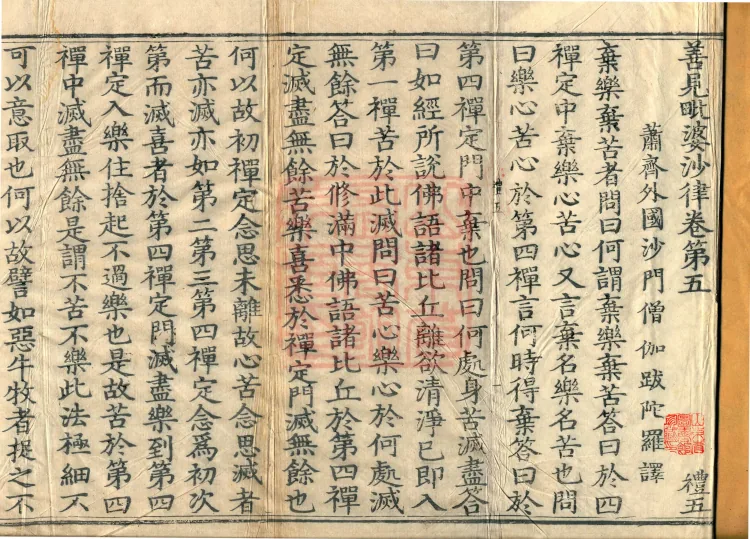 善見毗婆沙律卷第五
禮五
蕭齊外國沙門僧伽跋陀羅譯
棄樂棄苦者問曰何謂棄樂棄苦答曰於四
禪定中棄樂心苦心又言棄名樂名苦也問
曰樂心苦心於第四禪言何時得棄答曰於
禮五
第四禪定門中棄也問曰何處身苦滅盡答
曰如經所說佛語諸比丘離欲清淨已即入
第一禪苦於此滅問曰苦心樂心於何處滅
無餘答曰於修滿中佛語諸比丘於第四禪
定滅盡無餘苦樂喜悉於禪定門滅無餘也
何以故初禪定念思未離故心苦念思滅者
苦亦滅亦如第二第三第四禪定念為初次
第而滅喜者於第四禪定門滅盡樂到第四
禪定入樂住捨起不過樂也是故苦於第四
禪中滅盡無餘是謂不苦不樂此法極細不
可以意取也何以故譬如惡牛牧者捉之不